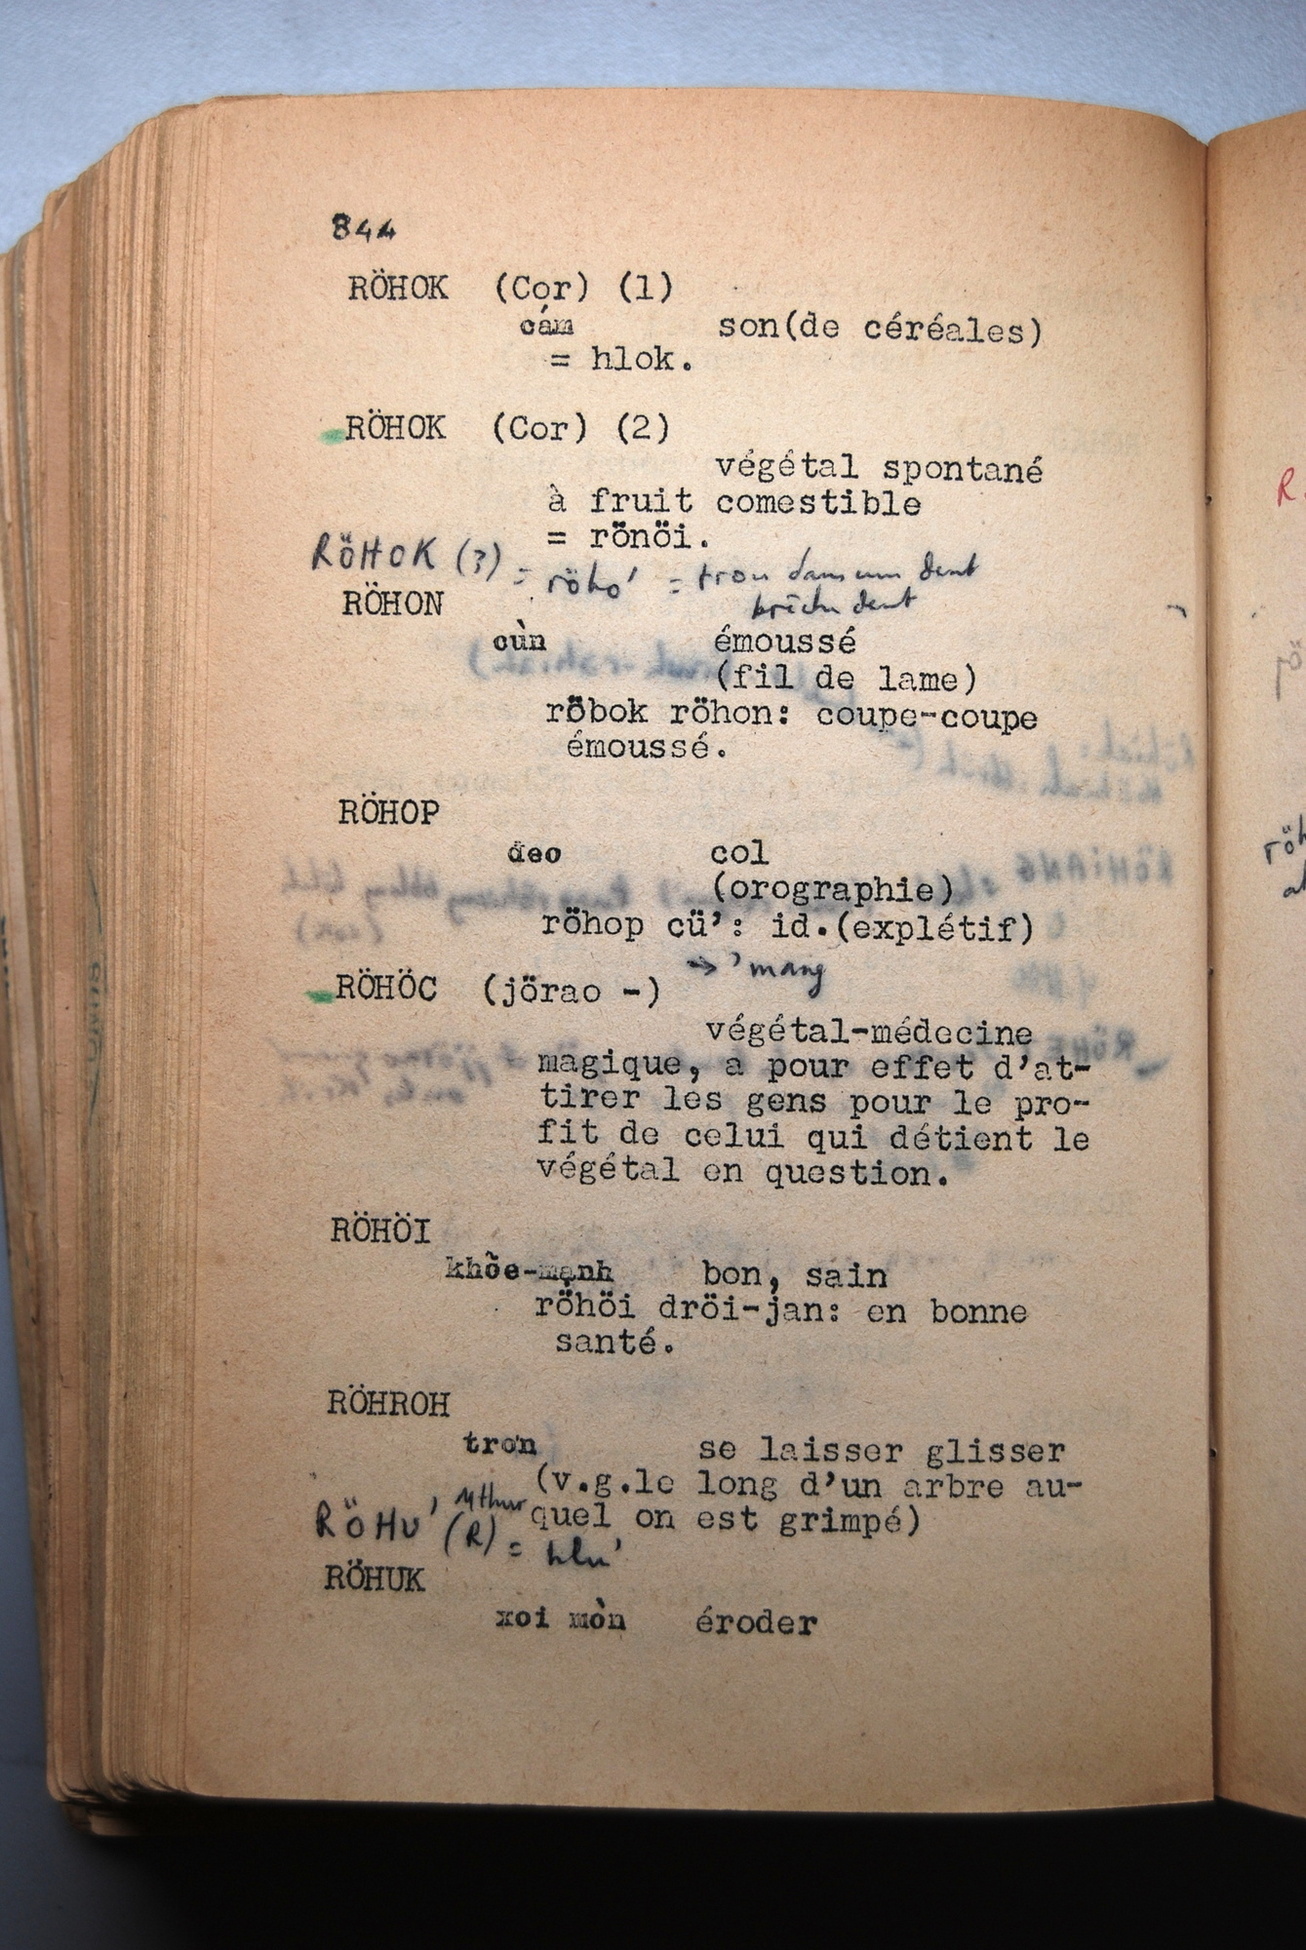 844
RÖHOK (Cor) (1)
cám son(de céréales)
= hlok.
RÖHOK (Cor) (2)
végétal spontané
à fruit comestible
= rönöi.
RÖHOK (3) = röho' = trou dans une dent
brèche dent
RÖHON
cùn émoussé
(fil de lame)
röbok röhon: coupe-coupe
émoussé.
RÖHOP
đeo col
(orographie)
röhop cü': id.(explétif)
→ 'mang
RÖHÖC (jörao -)
végétal-médecine
magique, a pour effet d'at-
tirer les gens pour le pro-
fit de celui qui détient le
végétal en question.
RÖHÖI
khỏe-mạnh bon, sain
röhöi dröi-jan: en bonne
santé.
RÖHROH
trơn se laisser glisser
(v.g.le long d'un arbre au-
quel on est grimpé)
RÖHU' (R) = hlu'
RÖHUK
xoi mòn éroder